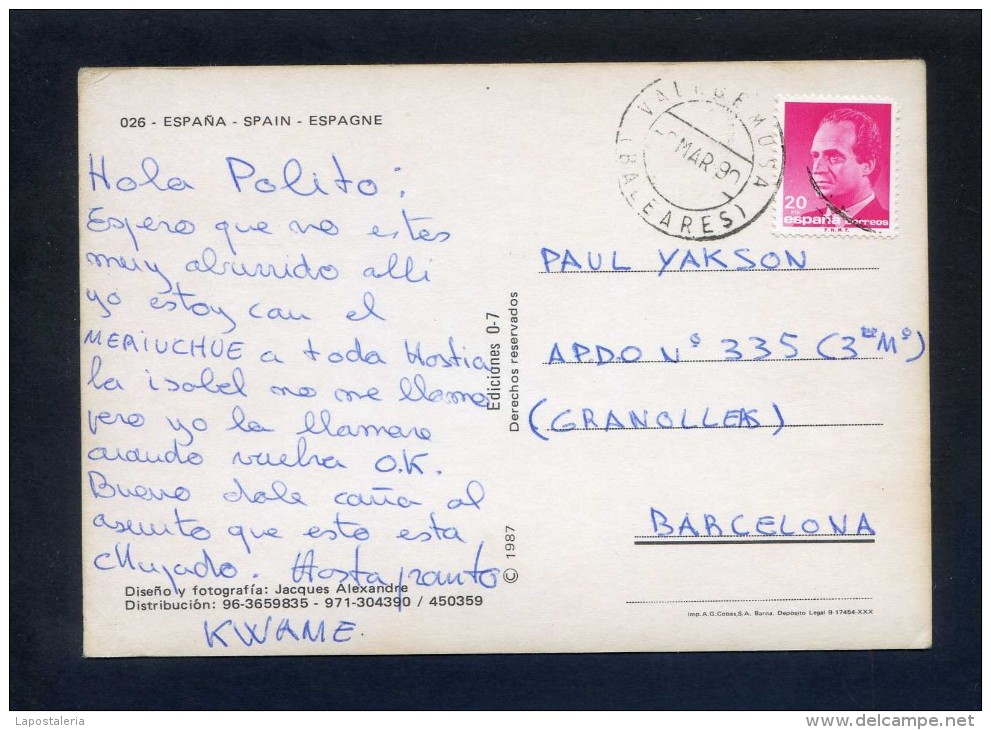 026 - ESPAÑA - SPAIN - ESPAGNE
Hola Polito:
Espero que no estes
muy aburrido alli
yo estoy con el
MERIUCHUE a toda Hostia
la isabel no me llamo
pero yo la llamare
cuando vuelva O.K.
Bueno dale caña al
asunto que esto esta
chupado. Hasta pronto
KWAME.
Diseño y fotografía: Jacques Alexandre
Distribución: 96-3659835 - 971-304390 / 450359
Ediciones 0-7
Derechos reservados
© 1987
VALLDEMOSA
MAR.90
(BALEARES)
20
PTA
españa correos
F.N.M.T.
PAUL YAKSON
APDO Nº 335 (3ºMº)
(GRANOLLERS)
BARCELONA
Imp. A.G. Cobas, S.A. Barna. Depósito Legal B-17454-XXX
Lapostaleria
delcampe.net